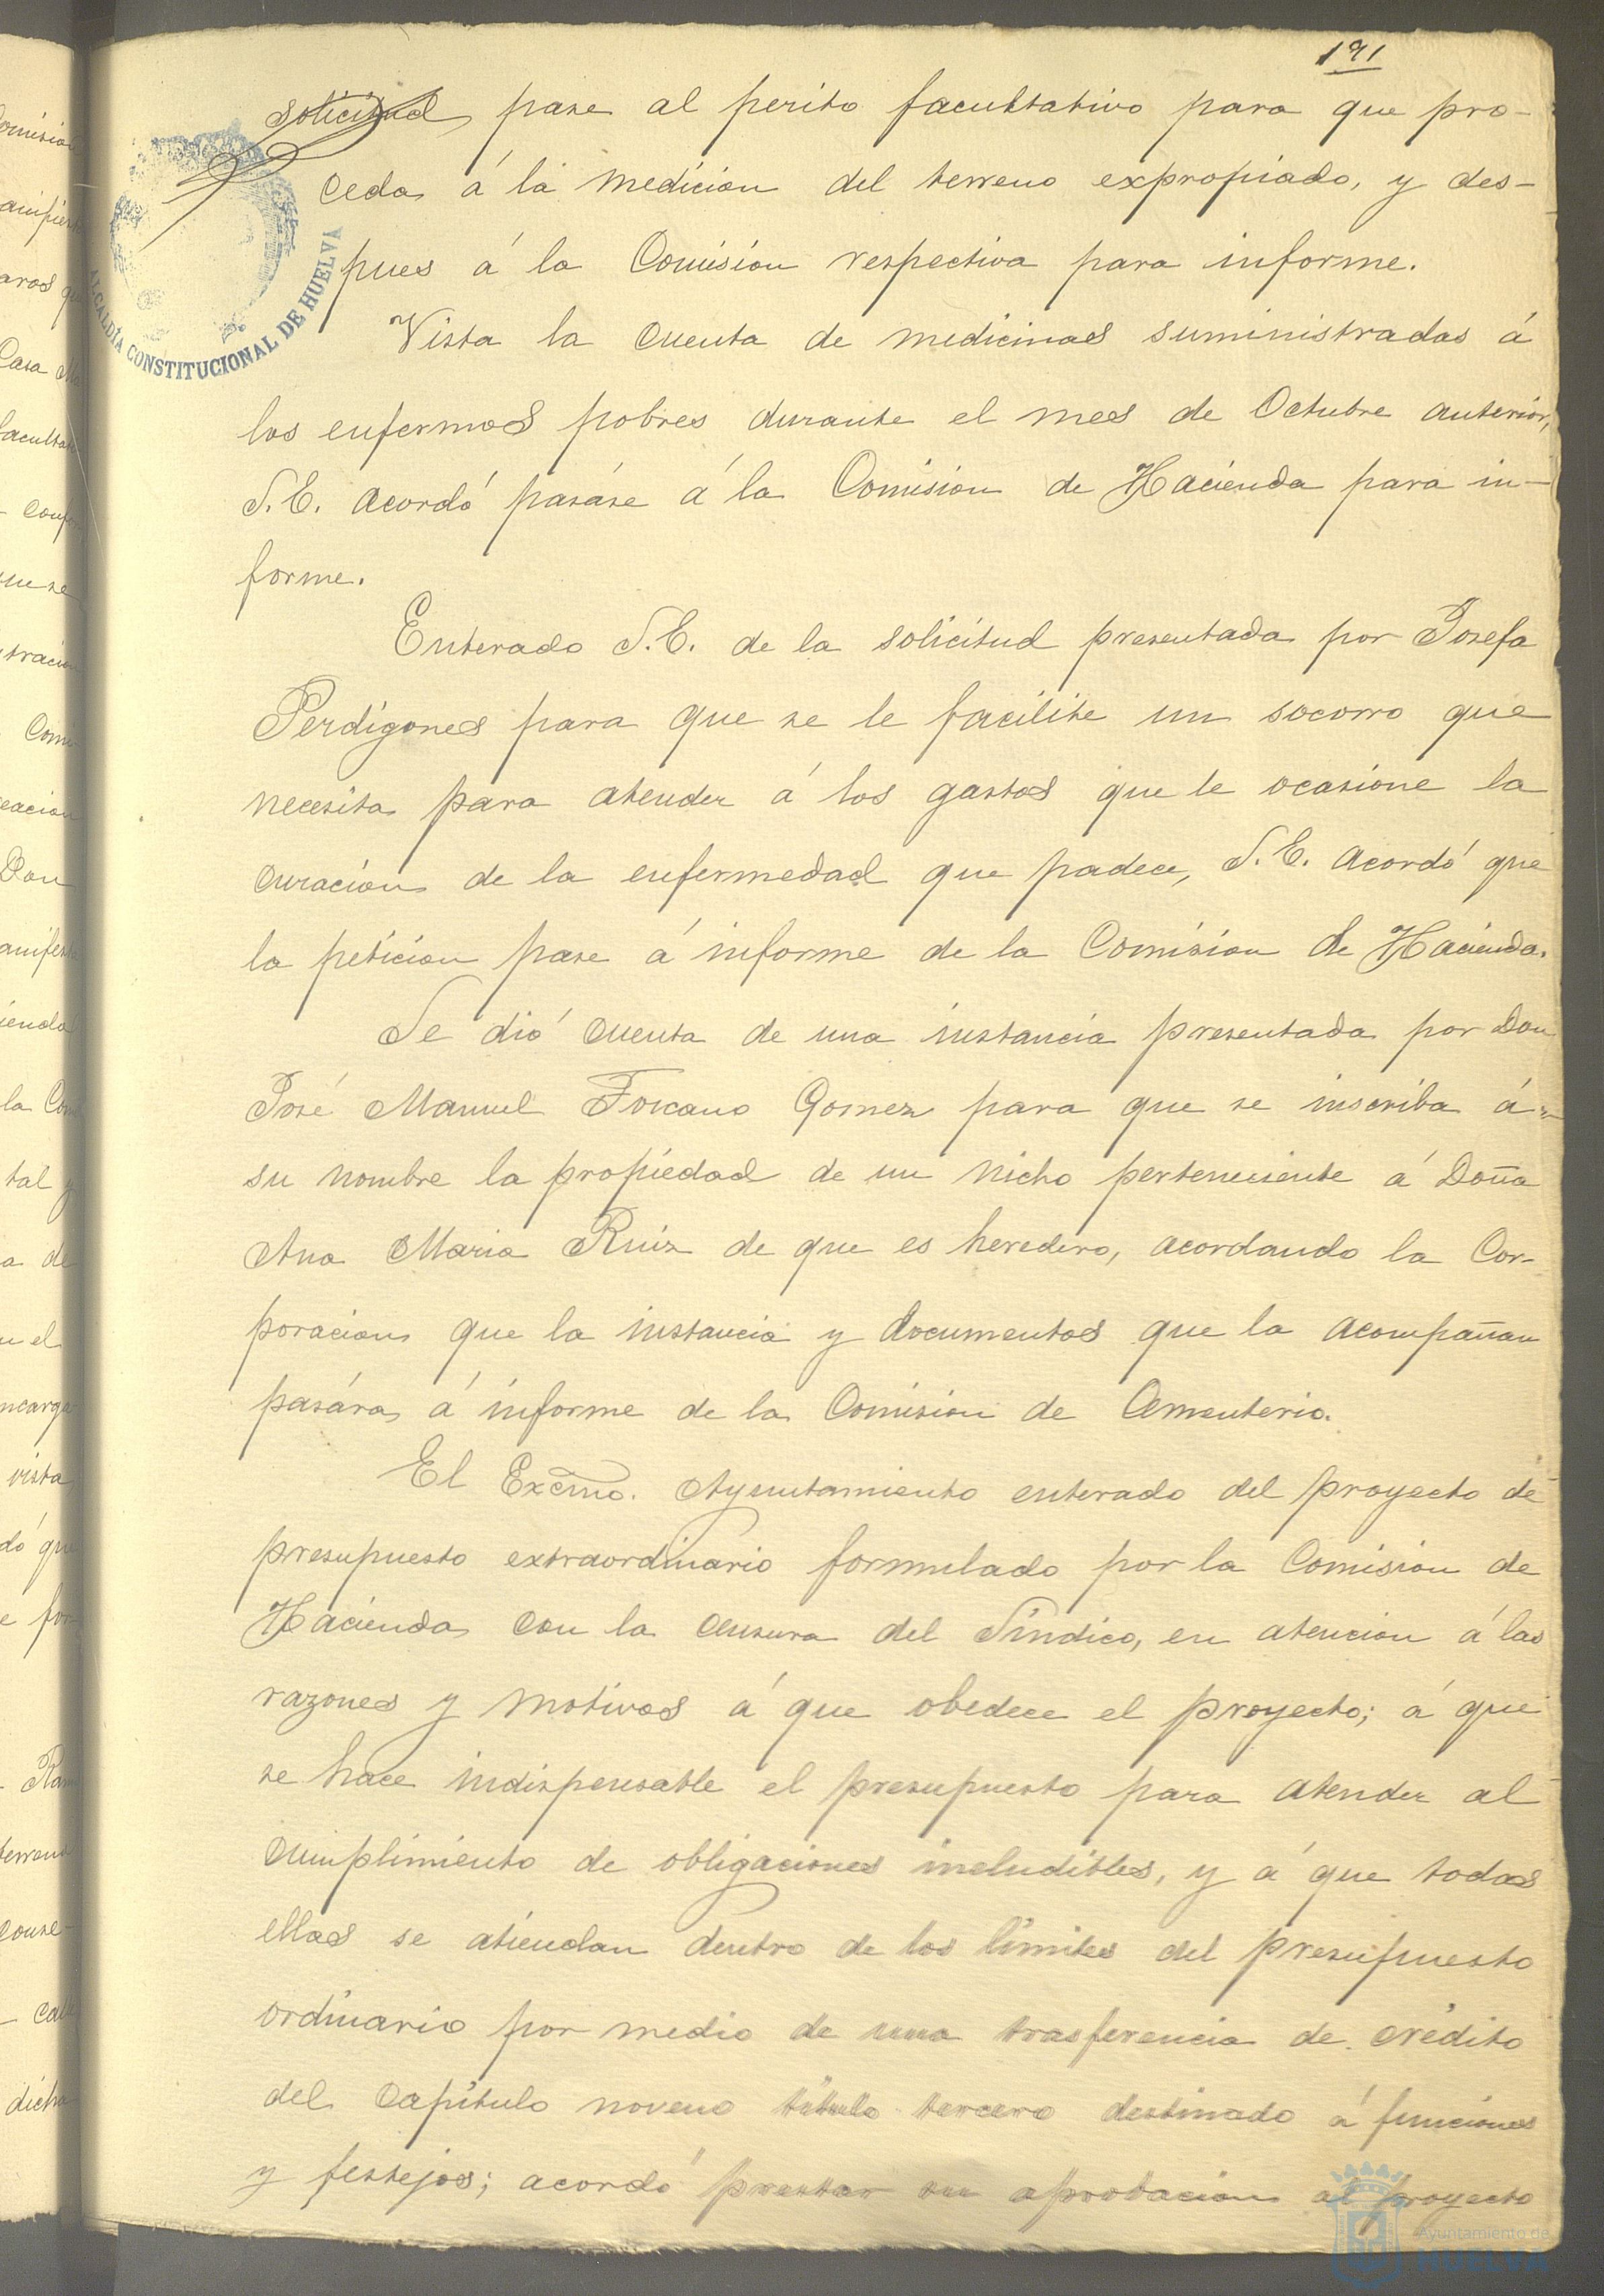 191
solicitud, pase al perito facultativo para que pro-
ceda á la medicion del terreno expropiado, y des-
pues á la Comision respectiva para informe.
ALCALDÍA CONSTITUCIONAL DE HUELVA
Vista la cuenta de medicinas suministradas á
los enfermos pobres durante el mes de Octubre anterior,
S.E. acordó pasáse á la Comision de Hacienda para in-
forme.
Enterado S.E. de la solicitud presentada por Josefa
Perdigones para que se le facilite un socorro que
necesita para atender á los gastos que le ocasione la
curacion de la enfermedad que padece, S.E. acordó que
la peticion pase á informe de la Comision de Hacienda.
Se dió cuenta de una instancia presentada por Don
José Manuel Toscano Gomez para que se inscriba á
su nombre la propiedad de un nicho perteneciente á Doña
Ana Maria Ruiz de que es heredero, acordando la Cor-
poracion que la instancia y documentos que la acompañan
pasára á informe de la Comision de Cementerio.
El Excmo. Ayuntamiento enterado del proyecto de
presupuesto extraordinario formulado por la Comision de
Hacienda con la censura del Síndico, en atencion á las
razones y motivos á que obedece el proyecto; á que
se hace indispensable el presupuesto para atender al
cumplimiento de obligaciones ineludibles, y á que todas
ellas se atiendan dentro de los límites del presupuesto
ordinario por medio de una trasferencia de crédito
del Capítulo noveno título tercero destinado á funciones
y festejos; acordó prestar su aprobacion al proyecto
Ayuntamiento de
HUELVA